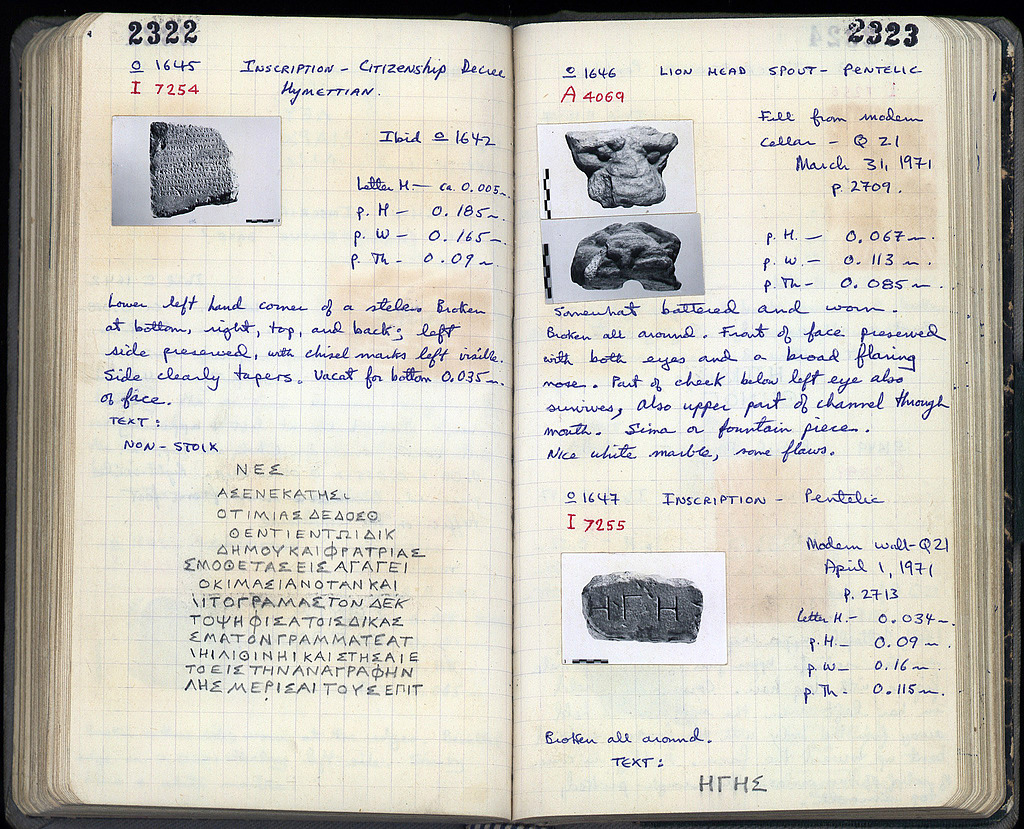 2322
O 1645 INSCRIPTION – CITIZENSHIP DECREE
I 7254 HYMETTIAN.
Ibid O 1642
Letter H — ca. 0.005 m.
p. H — 0.185 m.
p. W — 0.165 m.
p. Th — 0.09 m.
Lower left hand corner of a stele. Broken
at bottom, right, top, and back; left
side preserved, with chisel marks left visible.
Side clearly tapers. Vacat for bottom 0.035 m.
of face.
TEXT:
NON-STOIX
ΝΕΣ
ΑΣΕΝΕΚΑΤΗΣΙ
ΟΤΙΜΙΑΣΔΕΔΟΣΘ
ΘΕΝΤΙΕΝΤΩΙΔΙΚ
ΔΗΜΟΥΚΑΙΦΡΑΤΡΙΑΣ
ΣΜΟΘΕΤΑΣΕΙΣΑΓΑΓΕΙ
ΟΚΙΜΑΣΙΑΝΟΤΑΝΚΑΙ
\ΙΤΟΓΡΑΜΑΣΤΟΝΔΕΚ
ΤΟΨΗΦΙΣΑΤΟΙΣΔΙΚΑΣ
ΣΜΑΤΟΝΓΡΑΜΜΑΤΕΑΤ
\ΗΙΛΙΘΙΝΗΙΚΑΙΣΤΗΣΑΙΕ
ΤΟΕΙΣΤΗΝΑΝΑΓΡΑΦΗΝ
ΛΗΣΜΕΡΙΣΑΙΤΟΥΣΕΠΙΤ
2323
O 1646 LION HEAD SPOUT – PENTELIC
A 4069
Fill from modern
cellar – Q 21
March 31, 1971
p. 2709.
p. H. — 0.067 m.
p. W. — 0.113 m.
p. Th — 0.085 m.
Somewhat battered and worn.
Broken all around. Front of face preserved
with both eyes and a broad flaring
nose. Part of cheek below left eye also
survives, also upper part of channel through
mouth. Sima or fountain piece.
Nice white marble, some flaws.
O 1647 INSCRIPTION – Pentelic
I 7255
Modern wall – Q21
April 1, 1971
p. 2713
ΗΓΗ
Letter H. — 0.034 m.
p. H. — 0.09 m.
p. W — 0.16 m.
p. Th – 0.115 m.
Broken all around.
TEXT:
ΗΓΗΣ